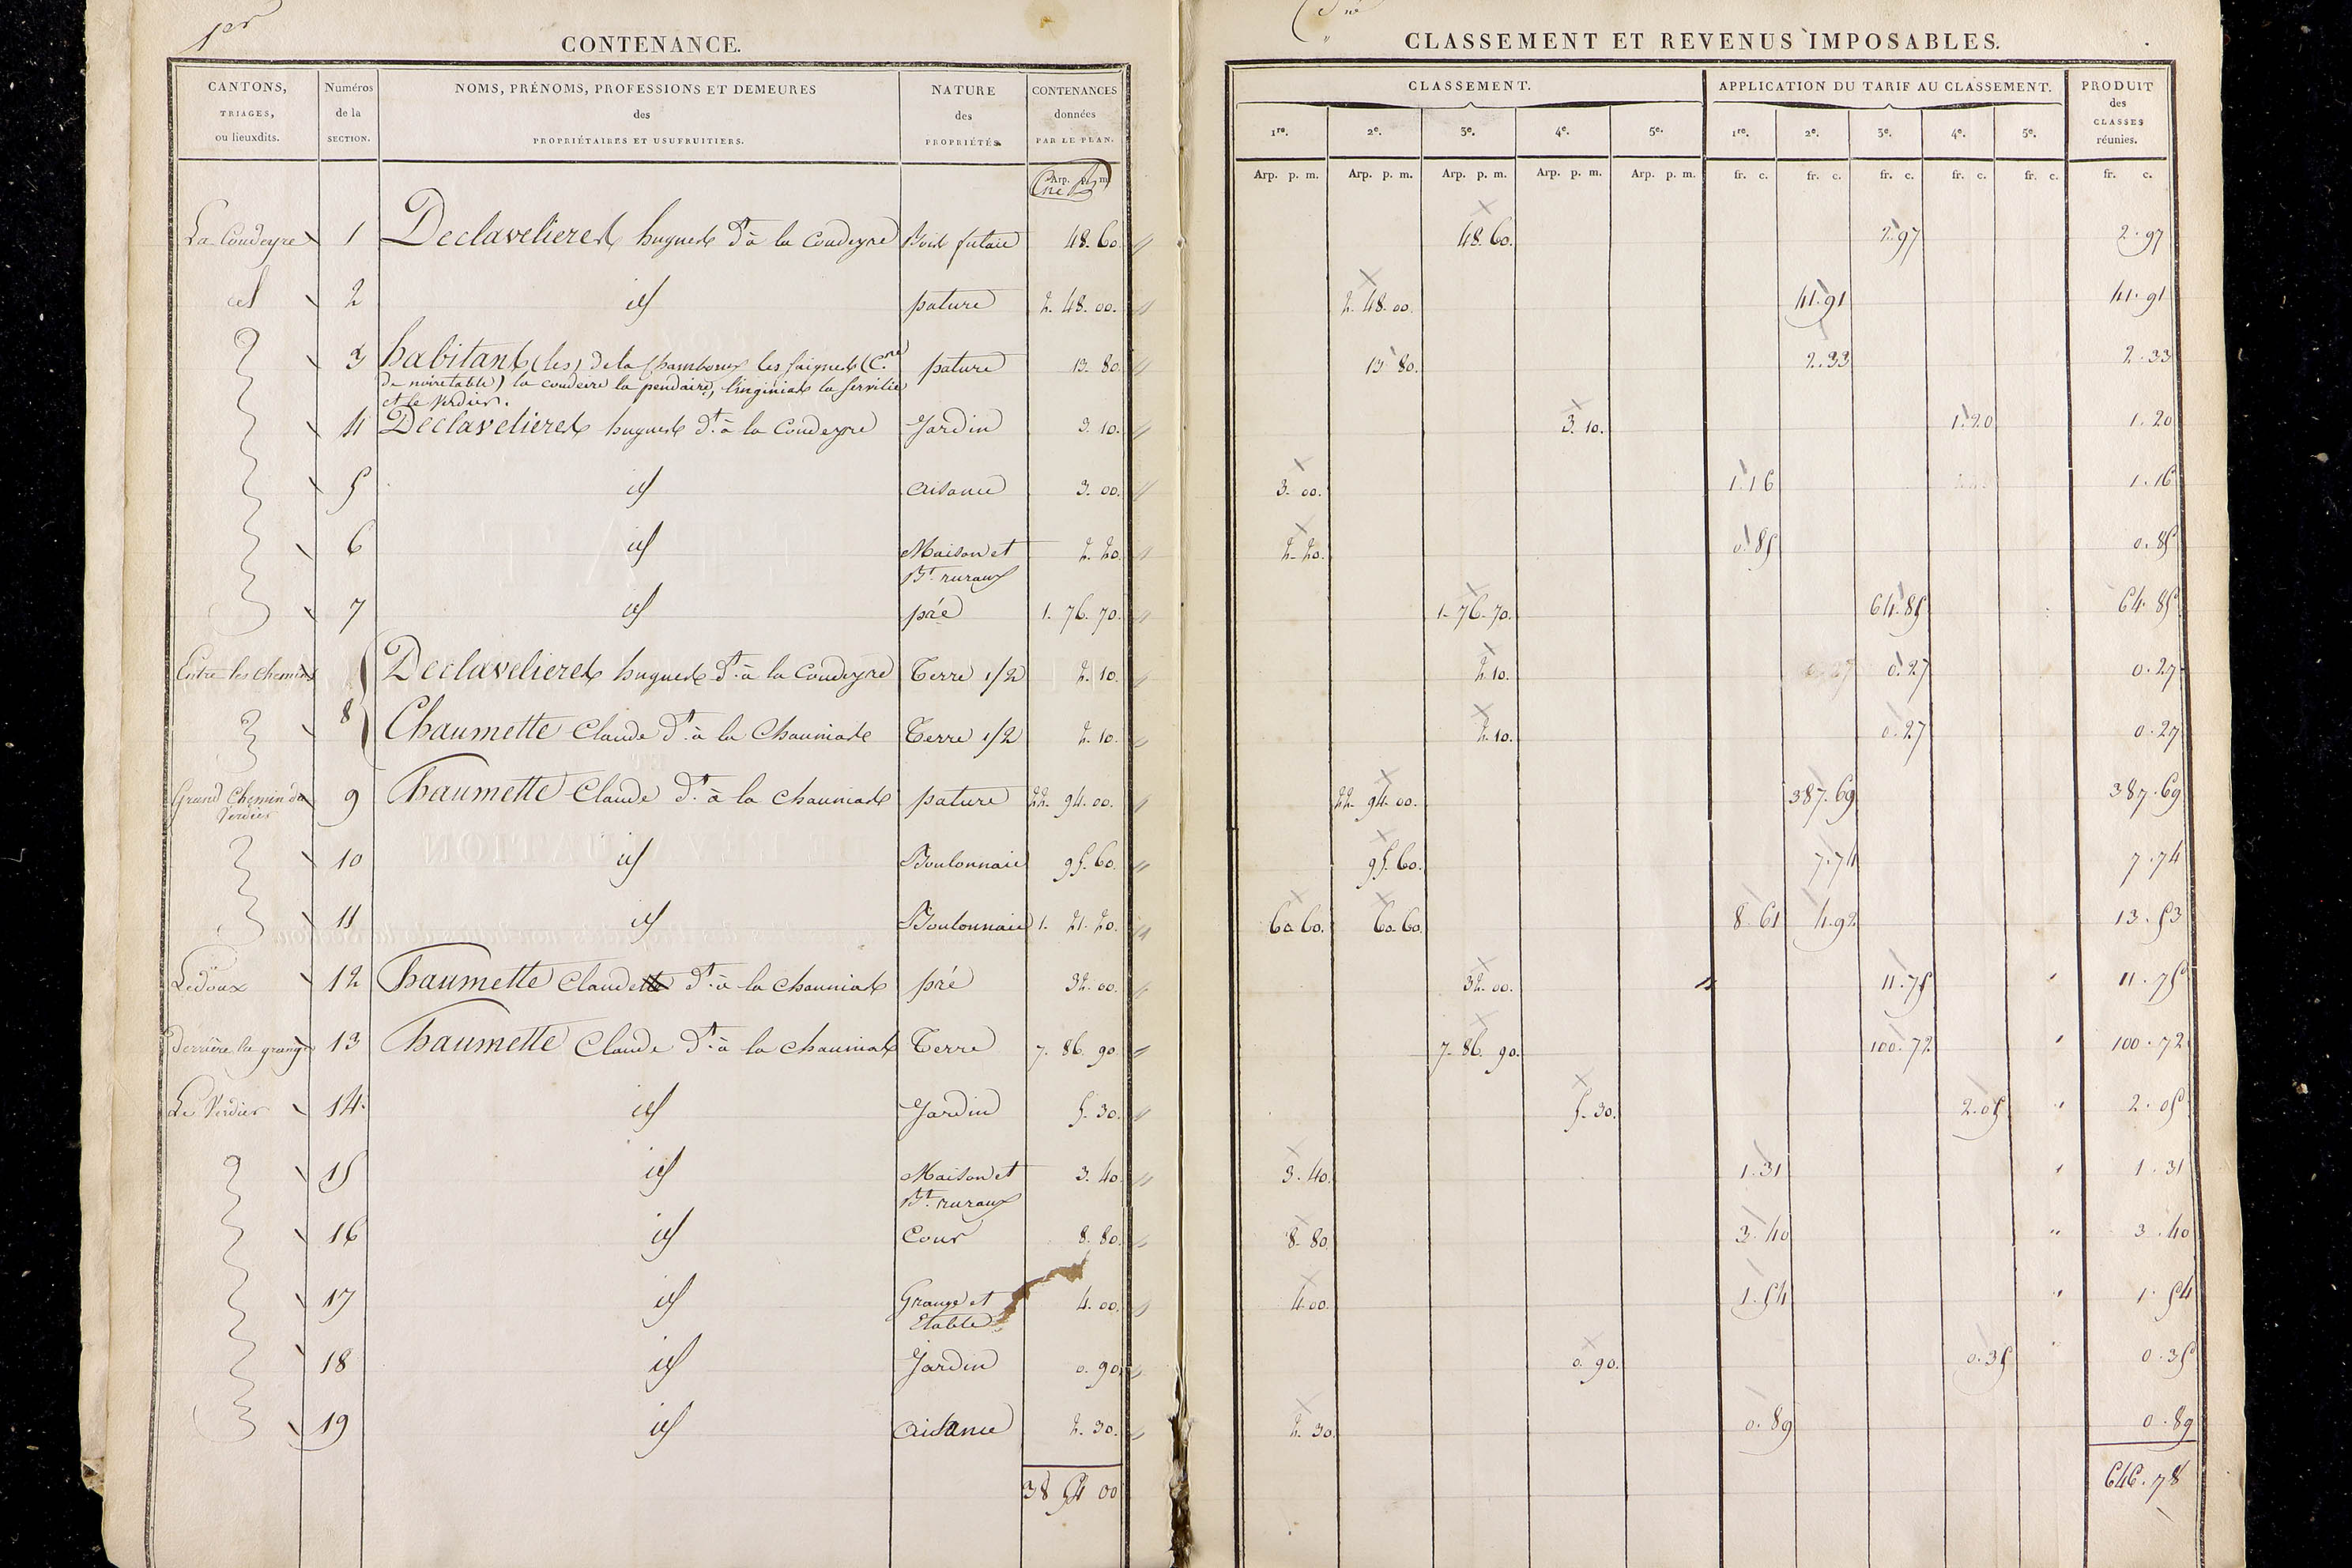 1er
CONTENANCE.
CANTONS,
TRIAGES,
ou lieuxdits.
Numéros
de la
SECTION.
NOMS, PRÉNOMS, PROFESSIONS ET DEMEURES
des
PROPRIÉTAIRES ET USUFRUITIERS.
NATURE
des
PROPRIÉTÉS.
CONTENANCES
données
PAR LE PLAN.
Arp. p. m.
La Coudeyre 1 Declavelieres hugues dt. à la Coudeyre Bois futaie 48. 60.
id 2 id pature 2. 48. 00.
3 habitants (les) de la Chamboux les faignes (Cne pature 13. 80.
de noiretable) la coudeire la pendaire, linginias la servilie
et le Verdier.
4 Declavelieres hugues dt. à la Coudeyre Jardin 3. 10.
5 id aisance 3. 00.
6 id Maison et 2. 20.
Bt. ruraux
7 id pré 1. 76. 70.
Entre les chemins Declavelieres hugues dt. à la Coudeyre Terre 1/2 2. 10.
8 Chaumette Claude dt. à la Chaunias Terre 1/2 2. 10.
Grand Chemin du 9 Chaumette Claude dt. à la Chaunias pature 22. 94. 00.
Verdier
10 id Boulonnaie 95. 60.
11 id Boulonnaie 1. 21. 20.
Ledoux 12 Chaumette Claude dt. à la Chaunias pré 32. 00.
Derrière la grange 13 Chaumette Claude dt. à la Chaunias Terre 7. 86. 90.
Le Verdier 14. id Jardin 5. 30.
15 id Maison et 3. 40.
Bt. ruraux
16 id Cour 8. 80.
17 id Grange et 4. 00.
Etable
18 id Jardin 0. 90.
19 id aisance 2. 30.
38 54 00
CLASSEMENT ET REVENUS IMPOSABLES.
CLASSEMENT.
APPLICATION DU TARIF AU CLASSEMENT.
PRODUIT
des
CLASSES
réunies.
1re. 2e. 3e. 4e. 5e. 1re. 2e. 3e. 4e. 5e.
Arp. p. m. Arp. p. m. Arp. p. m. Arp. p. m. Arp. p. m. fr. c. fr. c. fr. c. fr. c. fr. c. fr. c.
48. 60. 2. 97 2. 97
2. 48. 00. 41. 91 41. 91
13 80. 2. 33 2. 33
3. 10. 1. 20 1. 20
3. 00. 1. 16 1. 16
2. 20. 0. 85 0. 85
1. 76. 70. 64. 85 64. 85
2. 10. 0. 27 0. 27
2. 10. 0. 27 0. 27
22. 94. 00. 387. 69 387. 69
95. 60. 7. 74 7. 74
60. 60. 60. 60. 8. 61 4. 92 13. 53
32. 00. 11. 75 11. 75
7. 86. 90. 100. 72 100. 72
5. 30. 2. 05 2. 05
3. 40. 1. 31 1. 31
8. 80 3. 40 3. 40
4. 00. 1. 54 1. 54
0. 90. 0. 35 0. 35
2. 30. 0. 89 0. 89
646. 78